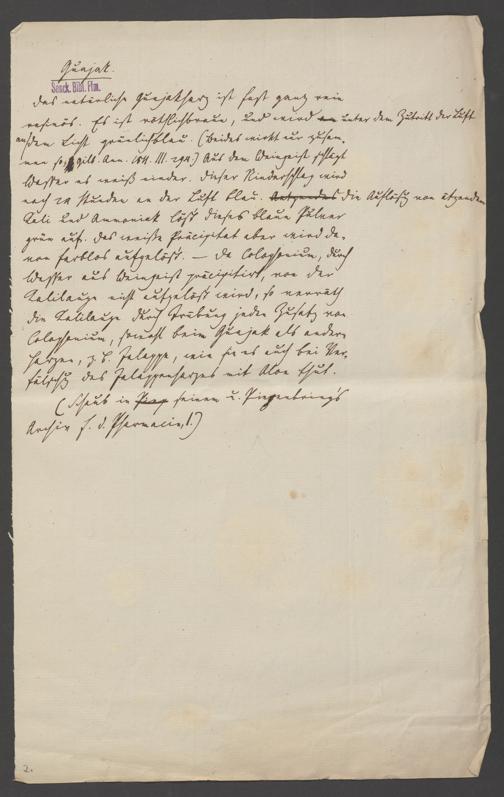 Guajak.
Senck. Bibl. Ffm.
Das natürliche Guajakharz ist fast ganz rein
resinös. Es ist röthlichbraun, und wird unter dem Zutritt der Luft
an dem Licht grünlichblau. (Beides wirkt nur zusam-
men so, Gilb. Ann. 1811. III. 294.) Aus dem Weingeist schlägt
Wasser es weiß nieder. Dieser Niederschlag wird
nach 24 Stunden an der Luft blau. Aetzendes die Auflösg von ätzendem
Kali und Ammoniak löst dieses blaue Pulver
grün auf. Das weiße Präcipitat aber wird da-
von farblos aufgelöst. — Da Colophonium, durch
Wasser aus Weingeist präcipitirt, von der
Kalilauge nicht aufgelöst wird, so verräth
die Kalilauge durch Trübung jeden Zusatz von
Colophonium, sowohl beim Guajak als andern
Harzen, z. B. Jalappe, wie sie es auch bei Ver-
fälschg des Jalappenharzes mit Aloe thut.
(Schaub in seinem u. Piepenbring's
Archiv f. d. Pharmacie, 1.)
2.